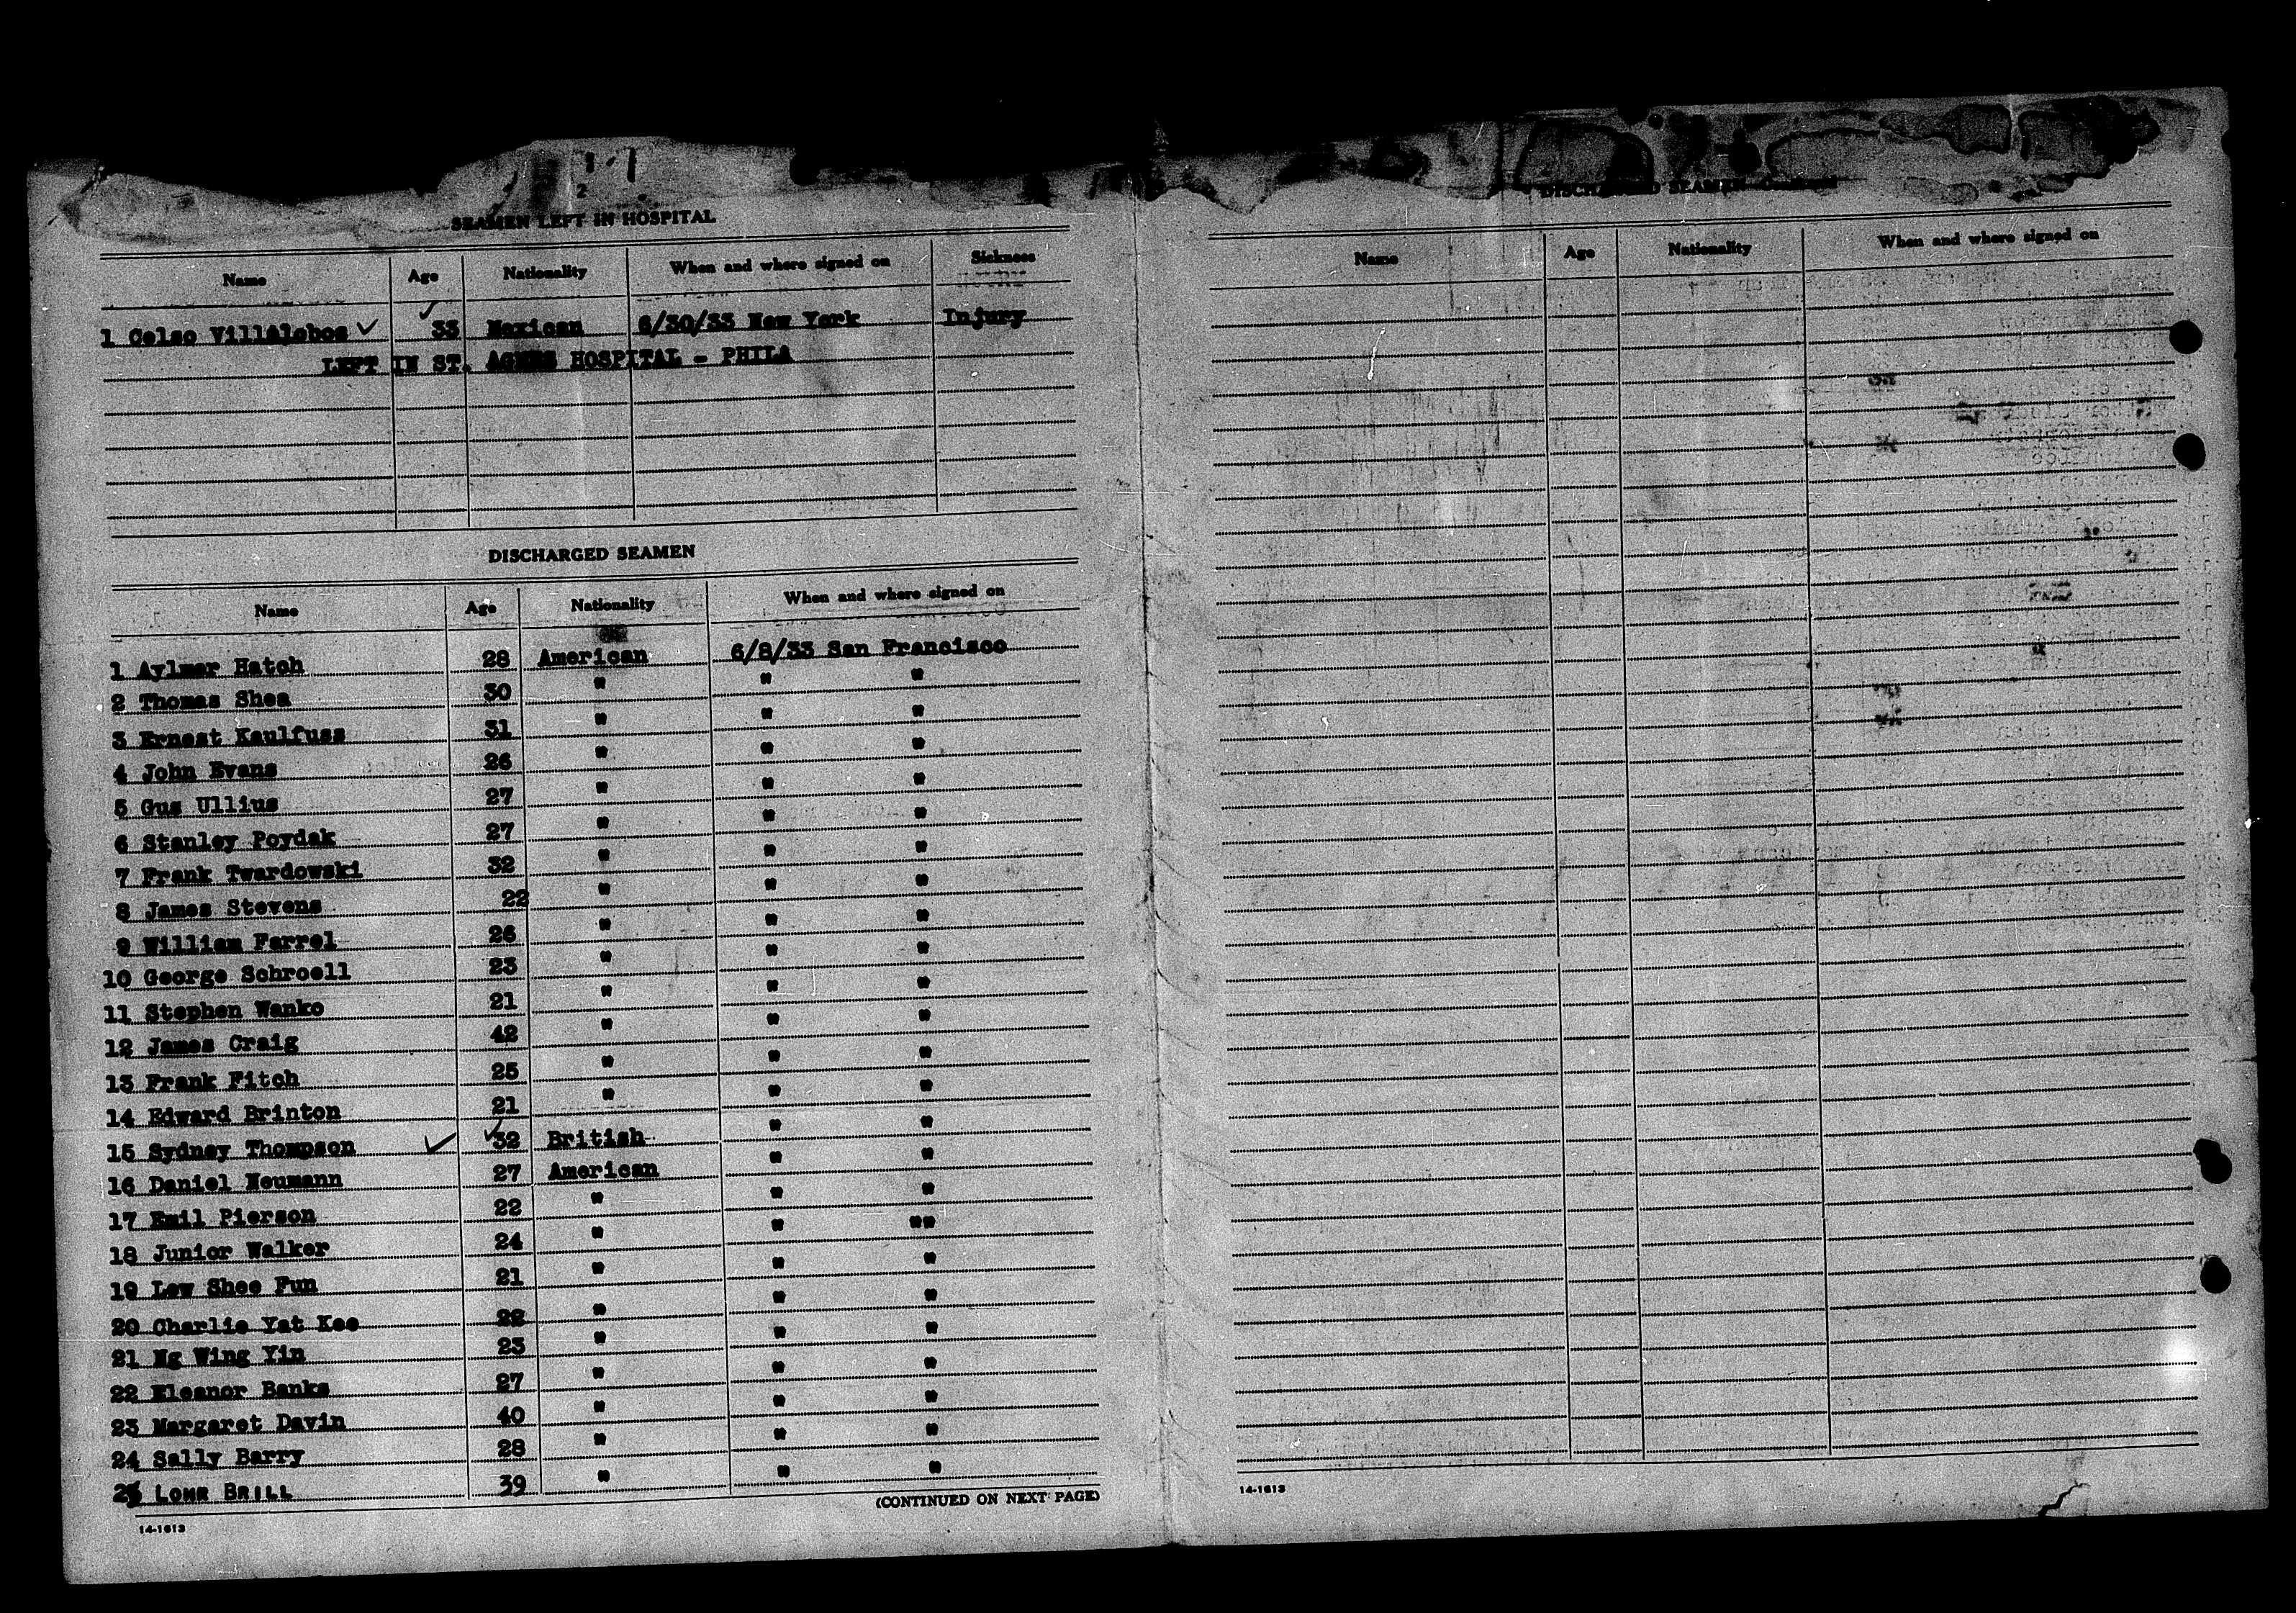 2
SEAMEN LEFT IN HOSPITAL
Name Age Nationality When and where signed on Sickness
1 Celso Villalobos ✓ 33 ✓ Mexican 6/30/33 New York Injury
LEFT IN ST. AGNES HOSPITAL - PHILA
DISCHARGED SEAMEN
Name Age Nationality When and where signed on
1 Aylmer Hatch 28 American 6/8/33 San Francisco
2 Thomas Shea 30 " " "
3 Ernest Kaulfuss 31 " " "
4 John Evans 26 " " "
5 Gus Ullius 27 " " "
6 Stanley Poydak 27 " " "
7 Frank Twardowski 32 " " "
8 James Stevens 22 " " "
9 William Farrel 26 " " "
10 George Schroell 23 " " "
11 Stephen Wanko 21 " " "
12 James Craig 42 " " "
13 Frank Fitch 25 " " "
14 Edward Brinton 21 " " "
15 Sydney Thompson ✓ 32 ✓ British " "
16 Daniel Neumann 27 American " "
17 Emil Pierson 22 " " "
18 Junior Walker 24 " " ""
19 Lew Shee Fun 21 " " "
20 Charlie Yat Kee 22 " " "
21 Ng Wing Yin 23 " " "
22 Eleanor Banks 27 " " "
23 Margaret Davin 40 " " "
24 Sally Barry 28 " " "
25 LOHR BRILL 39 " " "
(CONTINUED ON NEXT PAGE)
14-1613
DISCHARGED SEAMEN
Name Age Nationality When and where signed on
14-1613